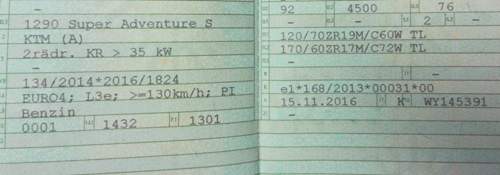 –
1290 Super Adventure S
KTM (A)
2rädr. KR > 35 kW
–
134/2014*2016/1824
EURO4; L3e; >=130km/h; PI
Benzin
0001 1432 1301
92 4500 76
– – 2 –
120/70ZR19M/C60W TL
170/60ZR17M/C72W TL
–
–
e1*168/2013*00031*00
15.11.2016 K WY145391
–